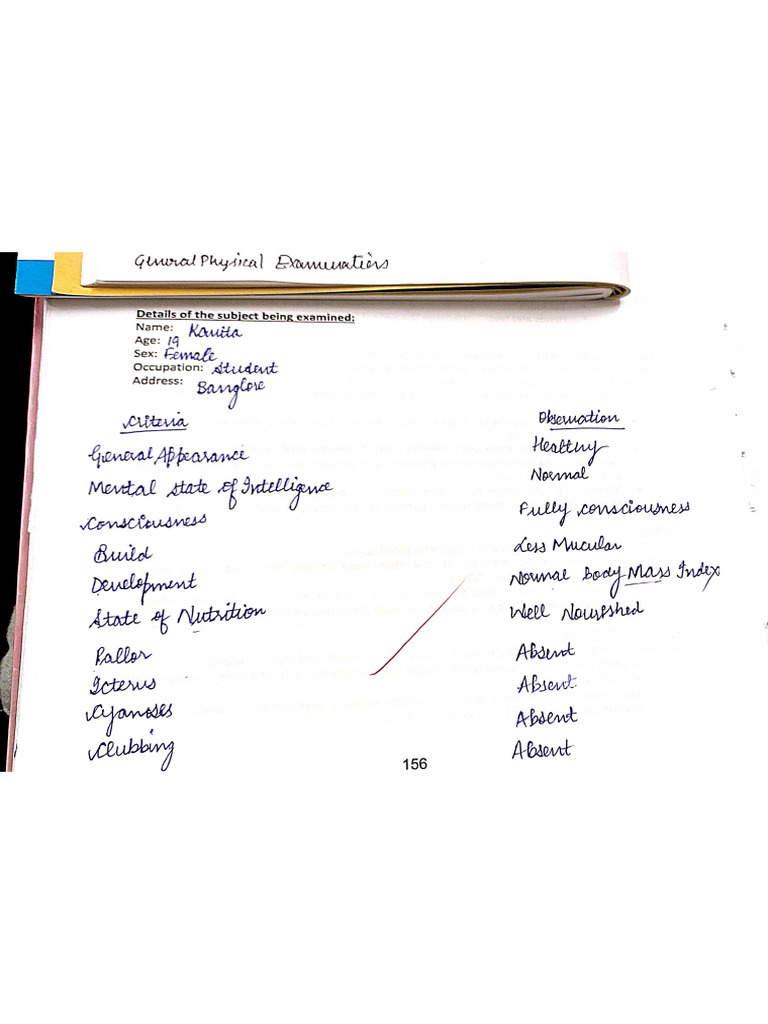 General Physical Examenations
Details of the subject being examined:
Name: Kavita
Age: 19
Sex: Female
Occupation: Student
Address: Banglore
Criteria Observation
General Appearance Healthy
Mental state of Intelligence Normal
Consciousness Fully consciousness
Build Less Mucular
Development Normal Body Mass Index
State of Nutrition Well Nourished
Pallor Absent
Icterus Absent
Cyanoses Absent
Clubbing Absent
156